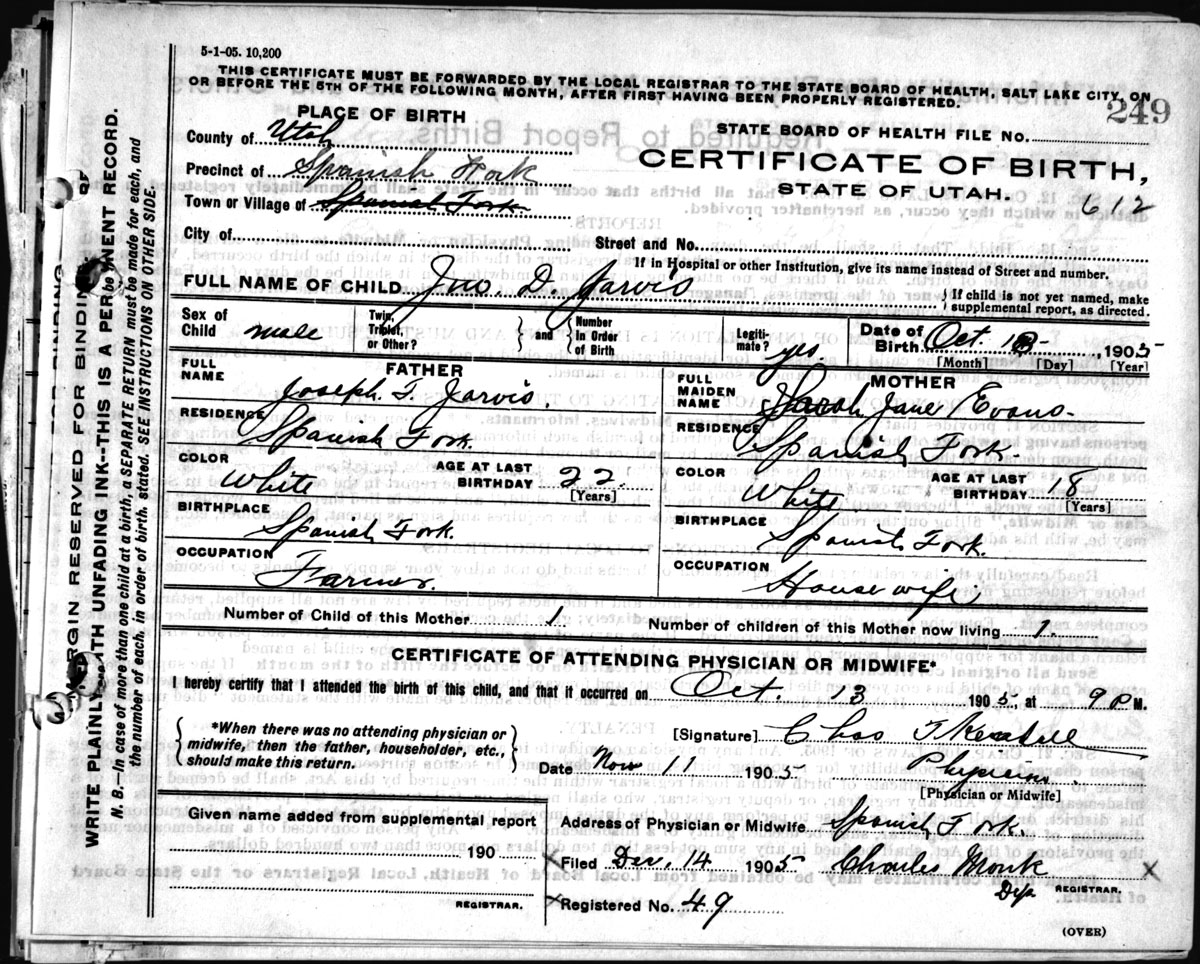 5-1-05. 10,200
THIS CERTIFICATE MUST BE FORWARDED BY THE LOCAL REGISTRAR TO THE STATE BOARD OF HEALTH, SALT LAKE CITY, ON
OR BEFORE THE 5TH OF THE FOLLOWING MONTH, AFTER FIRST HAVING BEEN PROPERLY REGISTERED.
249
PLACE OF BIRTH
STATE BOARD OF HEALTH FILE NO.
County of Utah
CERTIFICATE OF BIRTH,
Precinct of Spanish Fork
STATE OF UTAH.
612
Town or Village of Spanish Fork
City of
Street and No.
If in Hospital or other Institution, give its name instead of Street and number.
FULL NAME OF CHILD Jno. D. Jarvis
{ If child is not yet named, make
supplemental report, as directed.
Sex of Child male
Twin, Triplet, or Other?
} and { Number In Order of Birth
Legiti- mate? yes.
Date of Birth Oct. 13 - , 1905-
[Month] [Day] [Year]
FATHER
FULL NAME Joseph. T. Jarvis.
RESIDENCE Spanish Fork.
COLOR White
AGE AT LAST BIRTHDAY 22.
[Years]
BIRTHPLACE Spanish Fork.
OCCUPATION Farmer.
MOTHER
FULL MAIDEN NAME Sarah Jane Evans-
RESIDENCE Spanish Fork-
COLOR White
AGE AT LAST BIRTHDAY 18
[Years]
BIRTHPLACE Spanish Fork.
OCCUPATION Housewife
Number of Child of this Mother 1.
Number of children of this Mother now living 1.
CERTIFICATE OF ATTENDING PHYSICIAN OR MIDWIFE*
I hereby certify that I attended the birth of this child, and that it occurred on Oct. 13 1905, at 9 P M.
{ *When there was no attending physician or
midwife, then the father, householder, etc.,
should make this return. }
[Signature] Chas
Date Nov 11 1905
Physician
[Physician or Midwife]
Given name added from supplemental report
190
REGISTRAR.
Address of Physician or Midwife Spanish Fork.
x Filed Dec. 14 1905 Charles Monk x
Dep REGISTRAR.
x Registered No. 49
(OVER)
MARGIN RESERVED FOR BINDING
WRITE PLAINLY WITH UNFADING INK--THIS IS A PERMANENT RECORD.
N. B.--In case of more than one child at a birth, a SEPARATE RETURN must be made for each, and
the number of each, in order of birth, stated. SEE INSTRUCTIONS ON OTHER SIDE.